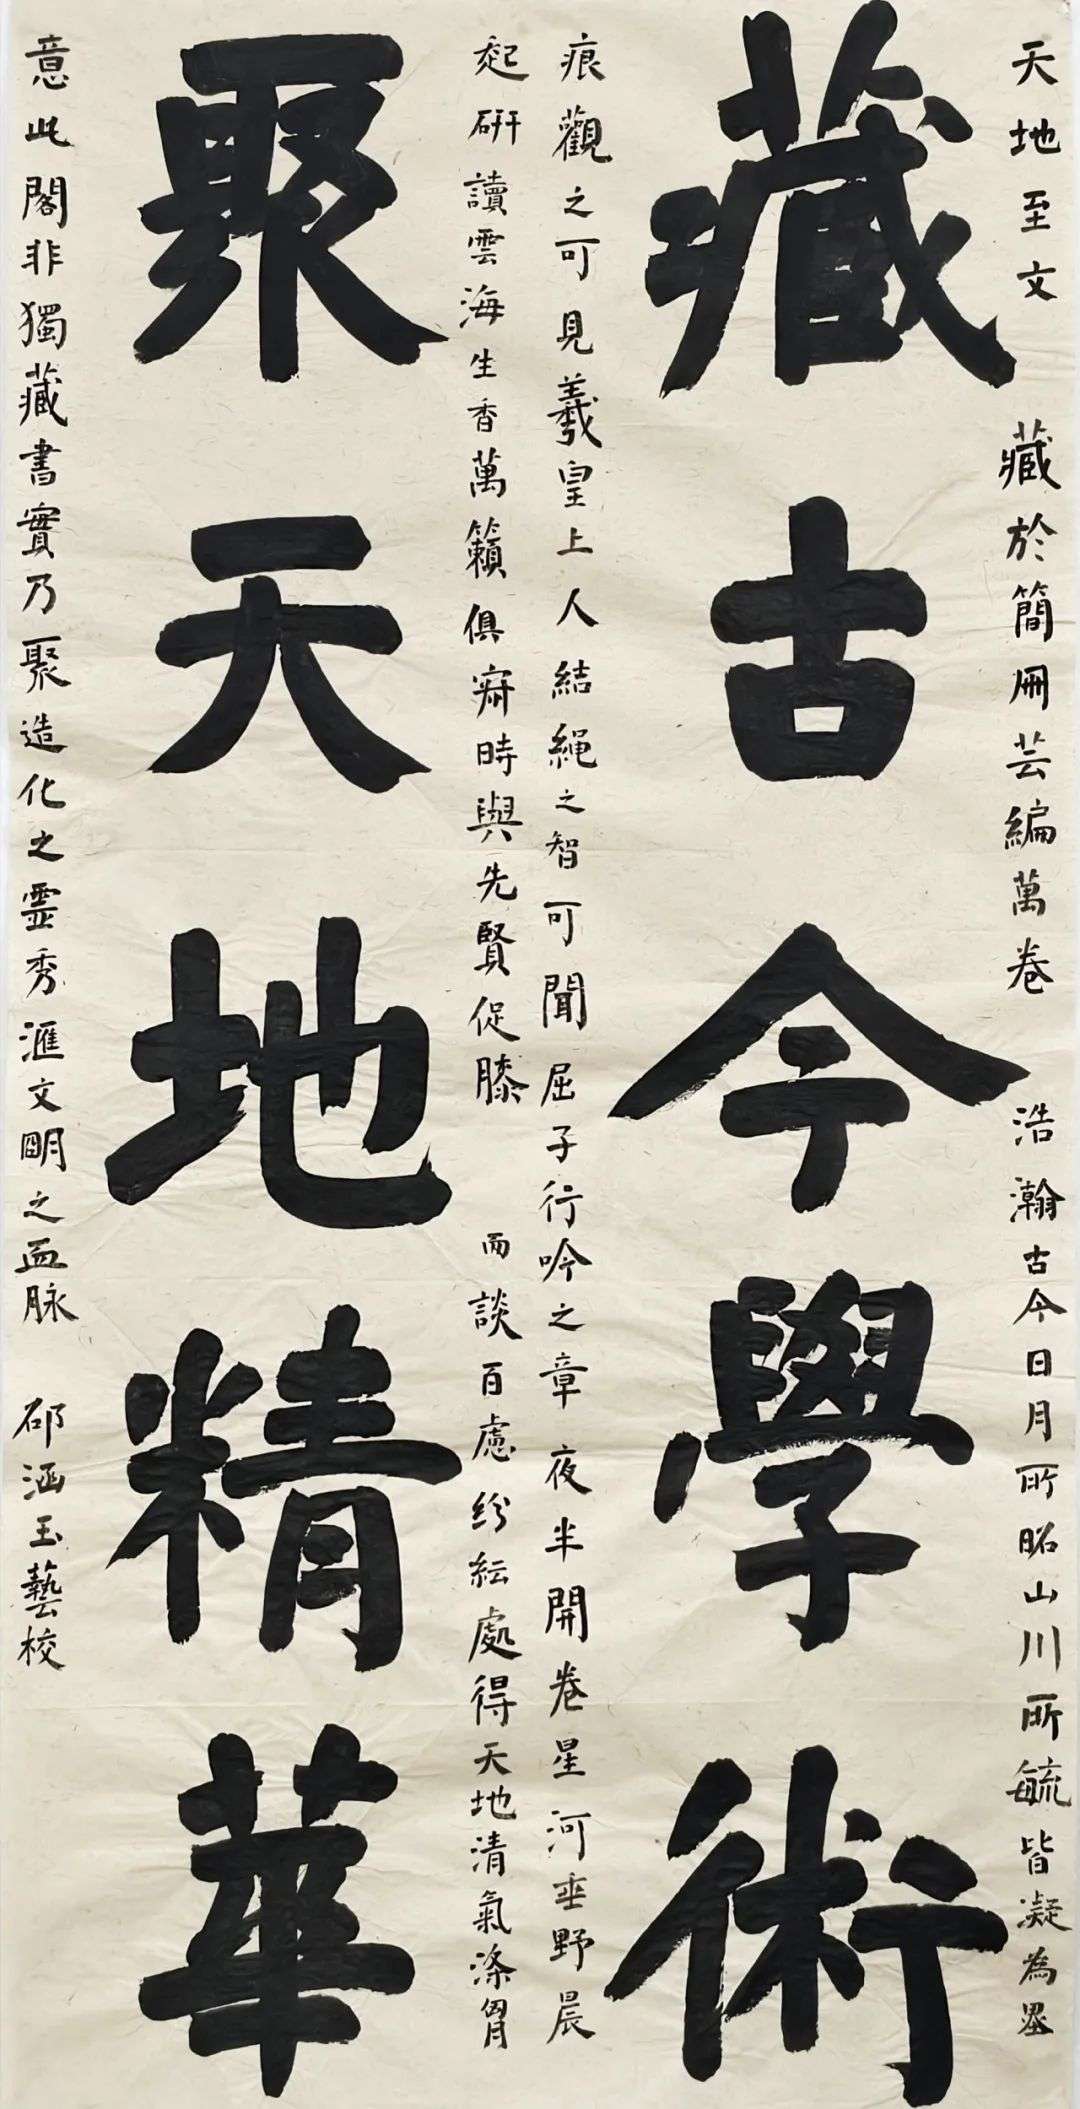 天地至文藏於簡冊芸編萬卷浩瀚古今日月所昭山川所毓皆凝為墨
藏古今學術
痕觀之可見羲皇上人結繩之智可聞屈子行吟之章夜半開卷星河垂野晨
起研讀雲海生香萬籟俱寂時與先賢促膝而談百慮紛紜處得天地清氣滌胃
聚天地精華
意此閣非獨藏書實乃聚造化之靈秀滙文明之血脉邵涵玉藝校